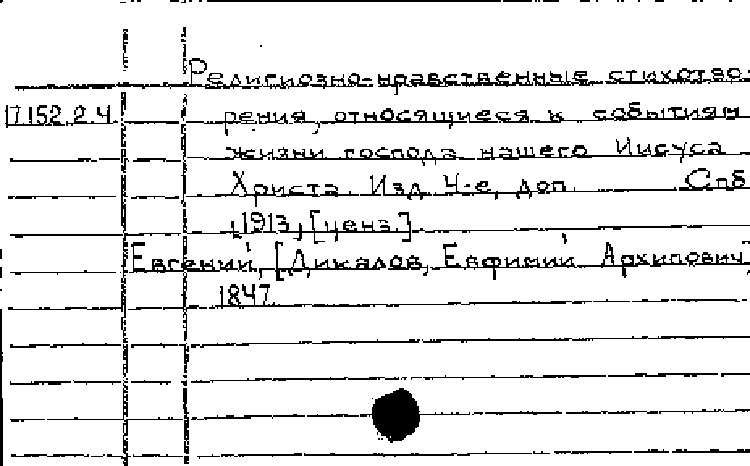 Религиозно-нравственные стихотво-
17152.2.4. рения, относящиеся к событиям
жизни господа нашего Иисуса
Христа. Изд. 4-е, доп. Спб
, 1913, [ценз.].
Евгений, [Дикалов, Евфимий Архипович]
1847